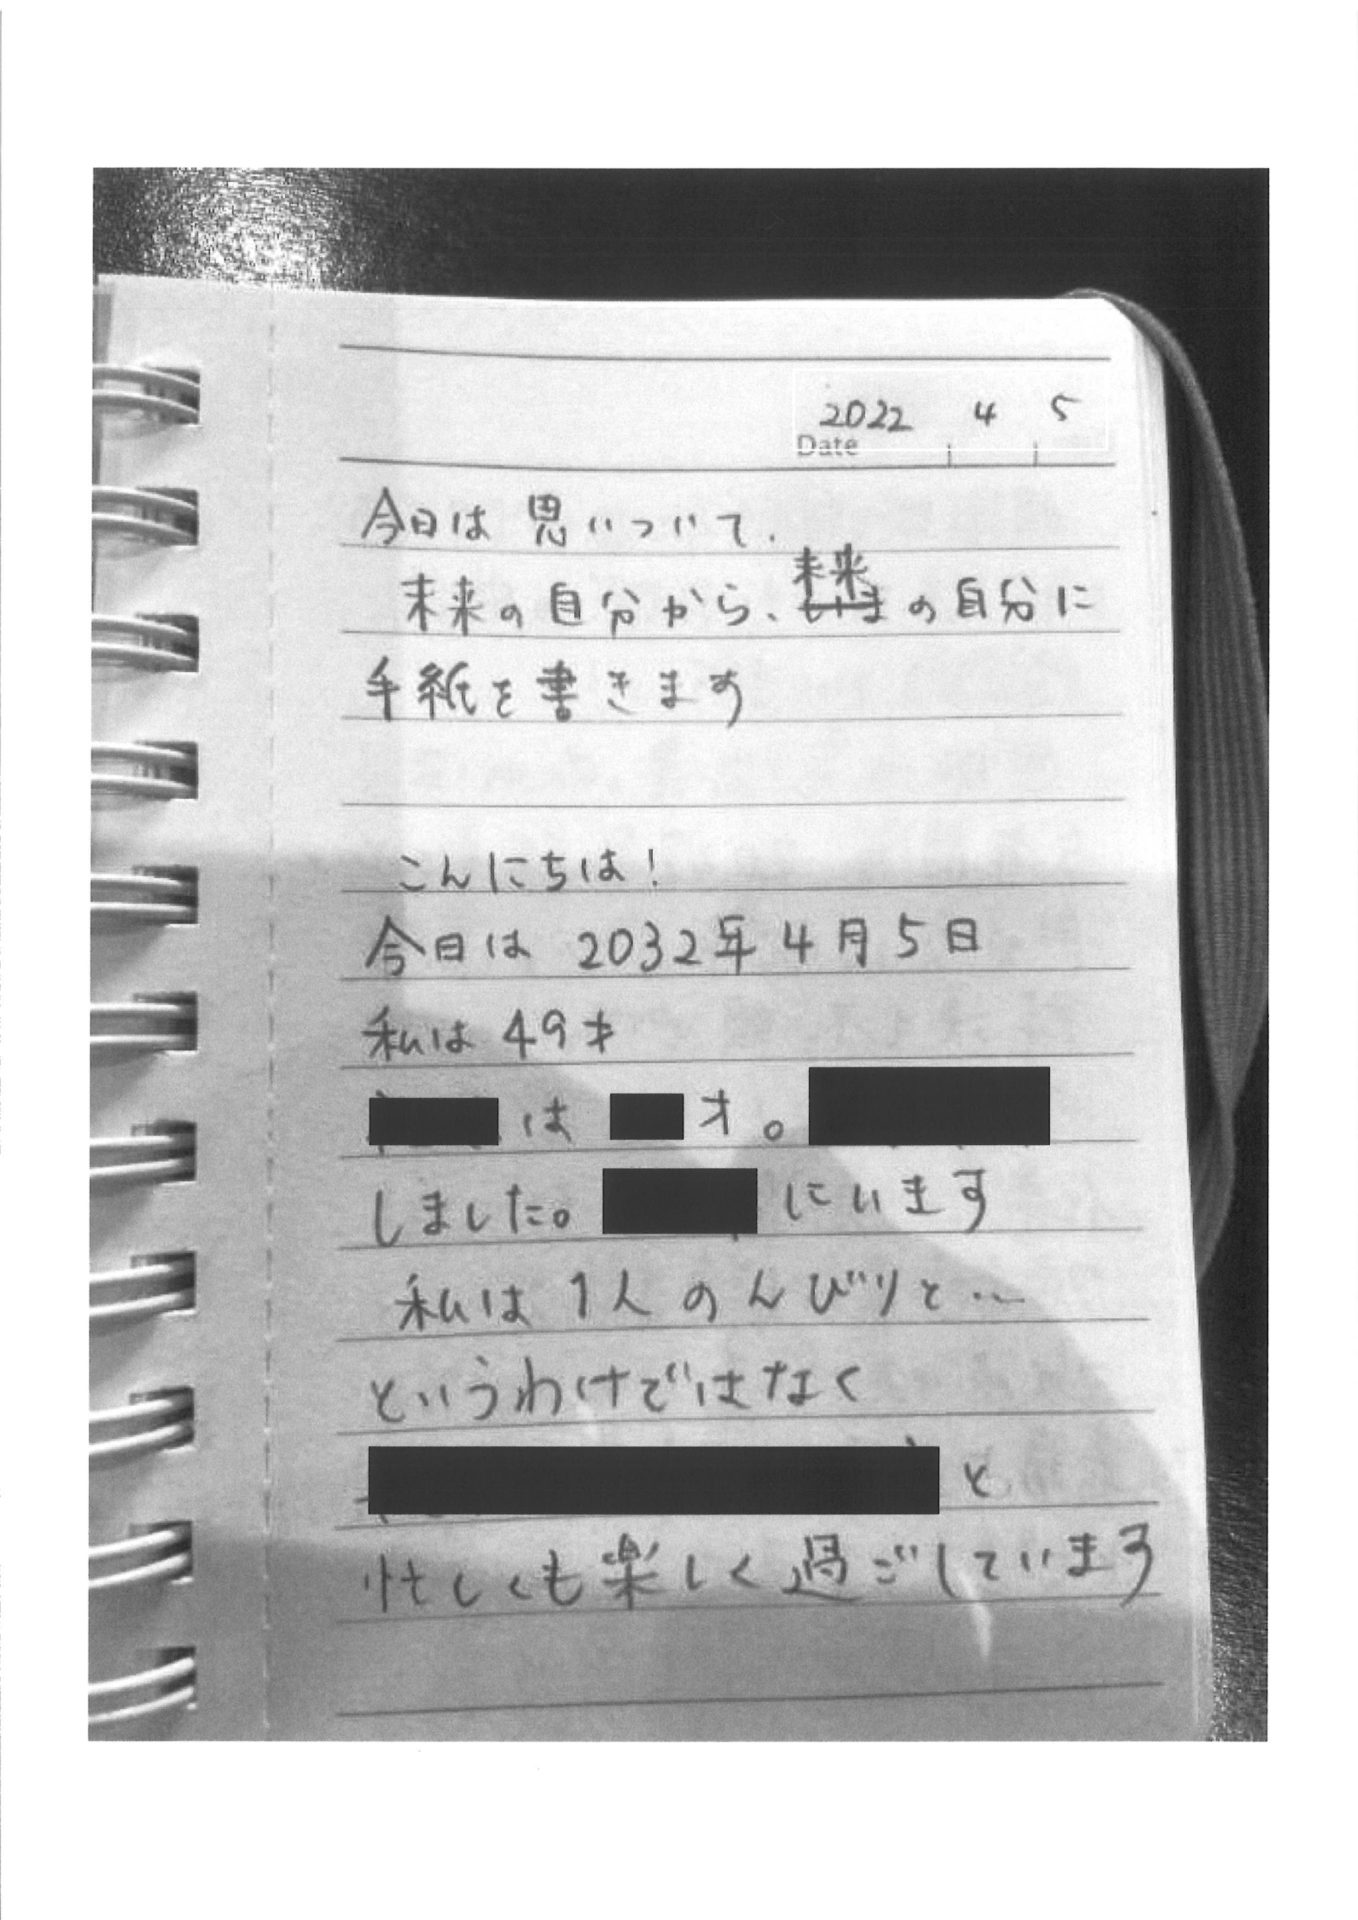 2022 4 5
Date
今日は思いついて、
未来の自分から、未来の自分に
手紙を書きます
こんにちは!
今日は 2032年4月5日
私は 49才
は 才。
しました。 にいます
私は1人のんびりと…
というわけではなく
と
忙しくも楽しく過ごしています